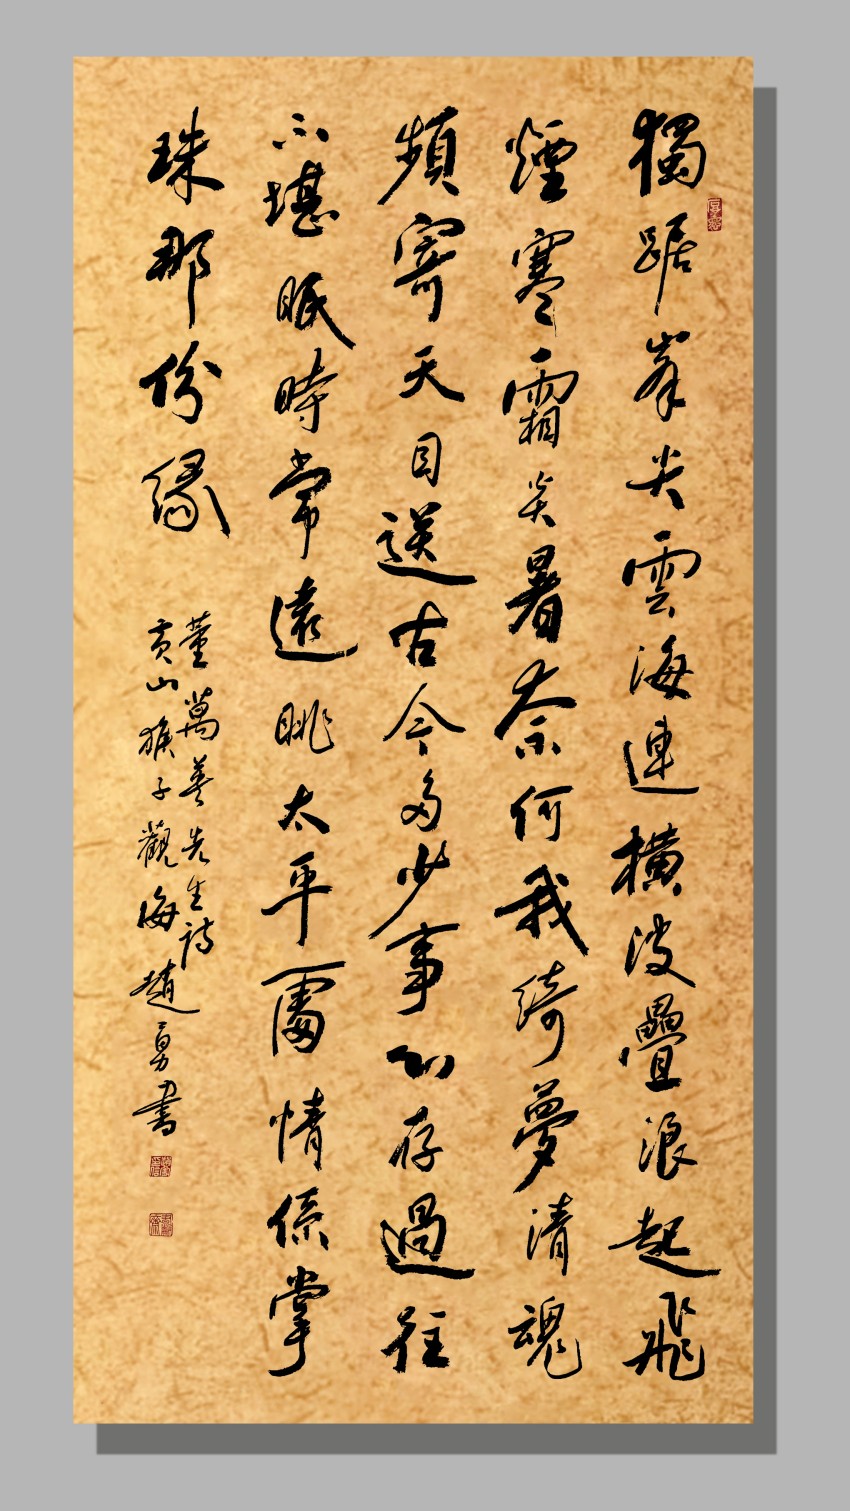 獨踞峯尖雲海連橫波疊浪起飛
煙寒霜炎暑奈何我綺夢清魂
頻寄天目送古今多少事心存過往
不堪眠時常遠眺太平情係掌
珠那份緣
董萬先生詩
黃山猴子觀海趙勇書